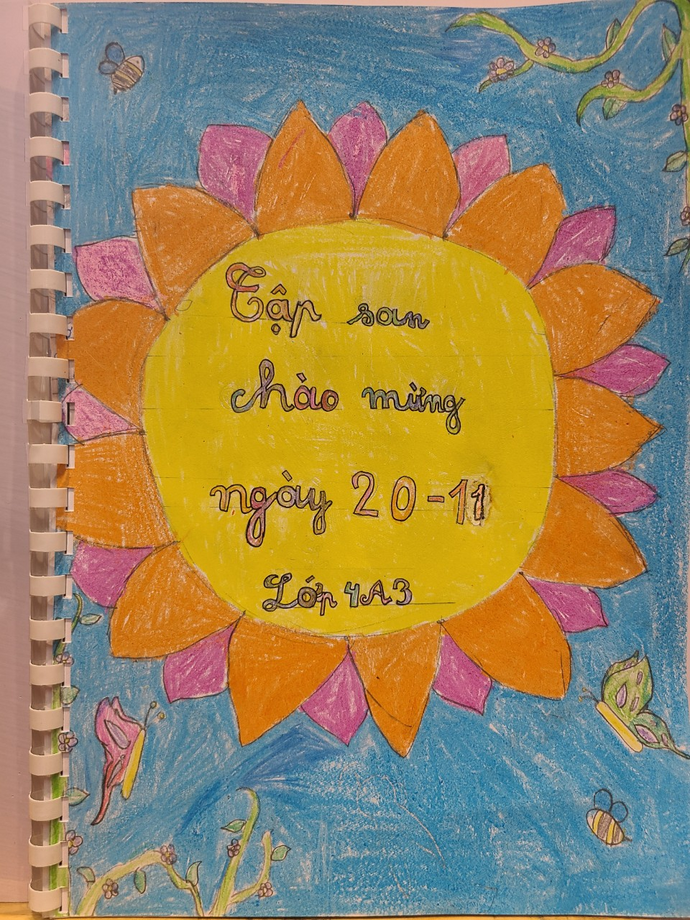 Tập san
chào mừng
ngày 20-11
Lớp 4A3